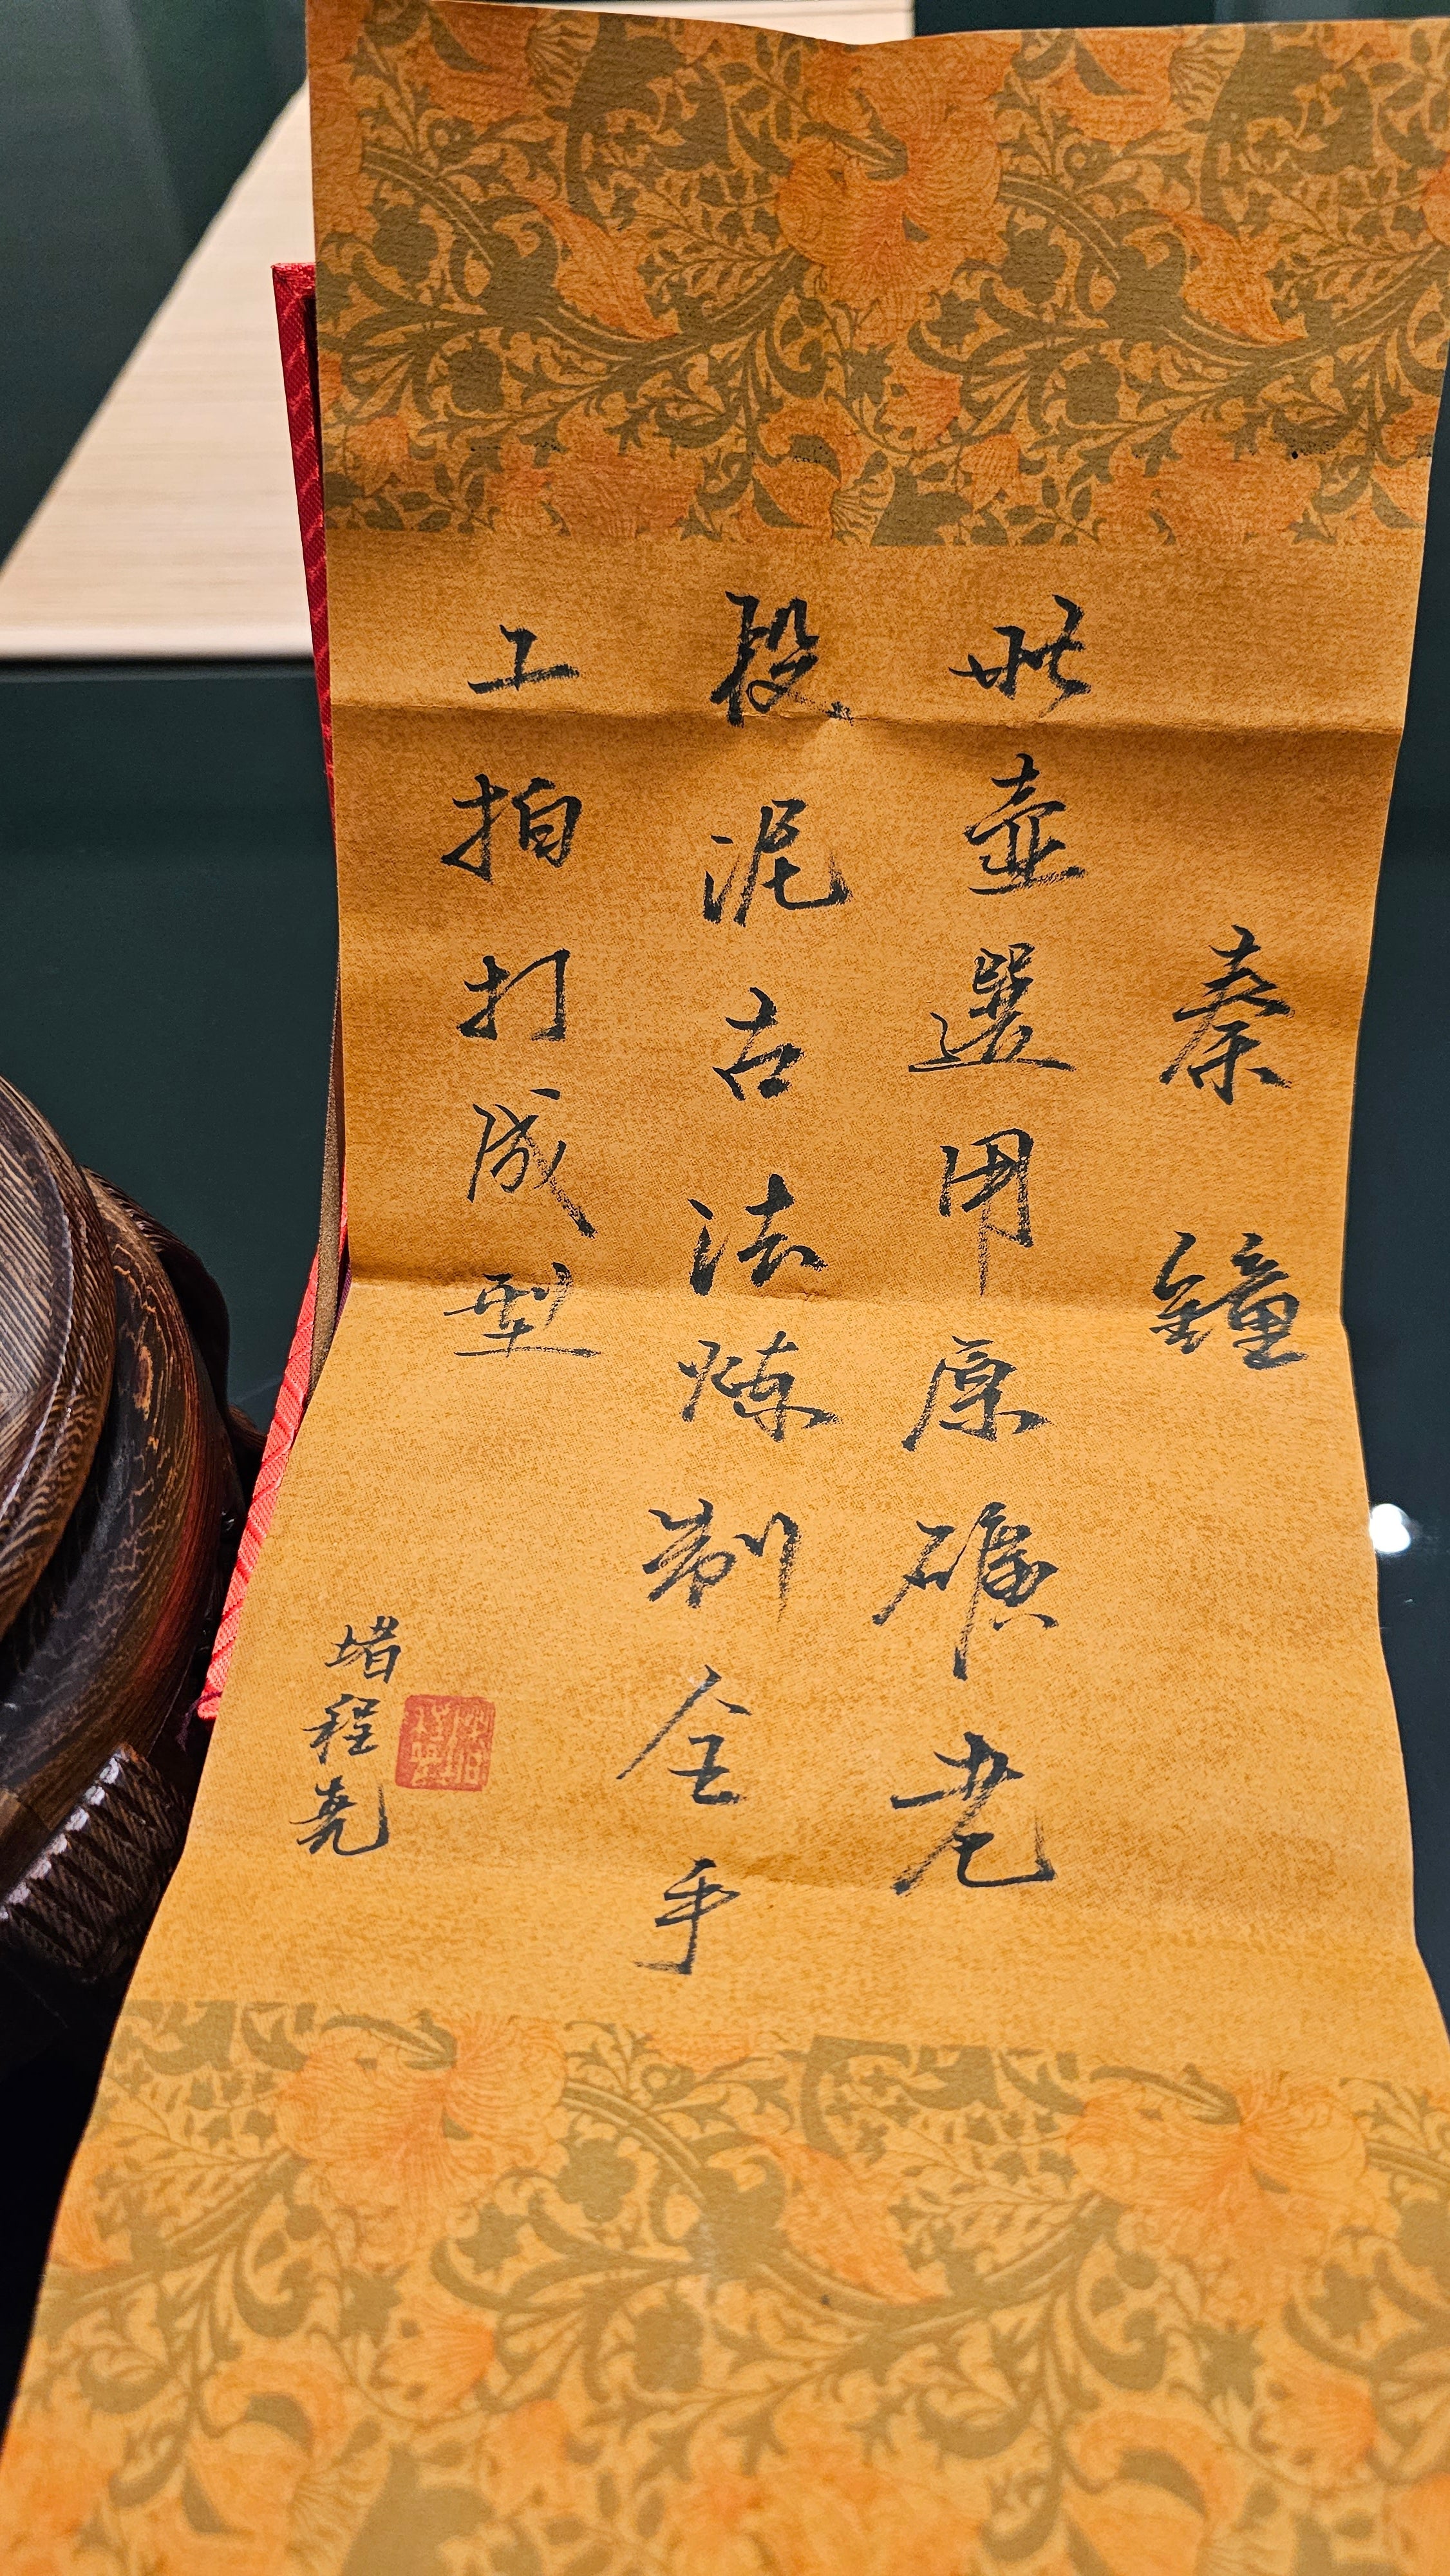 秦鐘
此壺選用原礦老
段泥古法炼制全手
工拍打成型
堵程尭